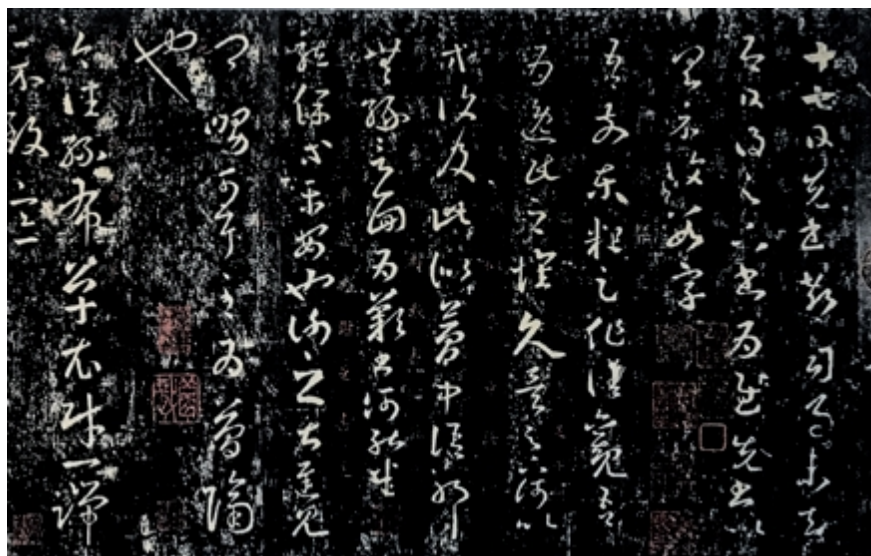 十七日先書郗司馬未去
即日得足下書為慰先書以
具示復數字
吾前東粗足作佳觀吾
為逸民之懷久矣足下何以
方復及此似夢中語耶
無緣言面為歎書何能悉
龍保等平安也謝之甚遲見
卿舅可耳至為簡隔
也
今往絲布單衣財一端
示致意